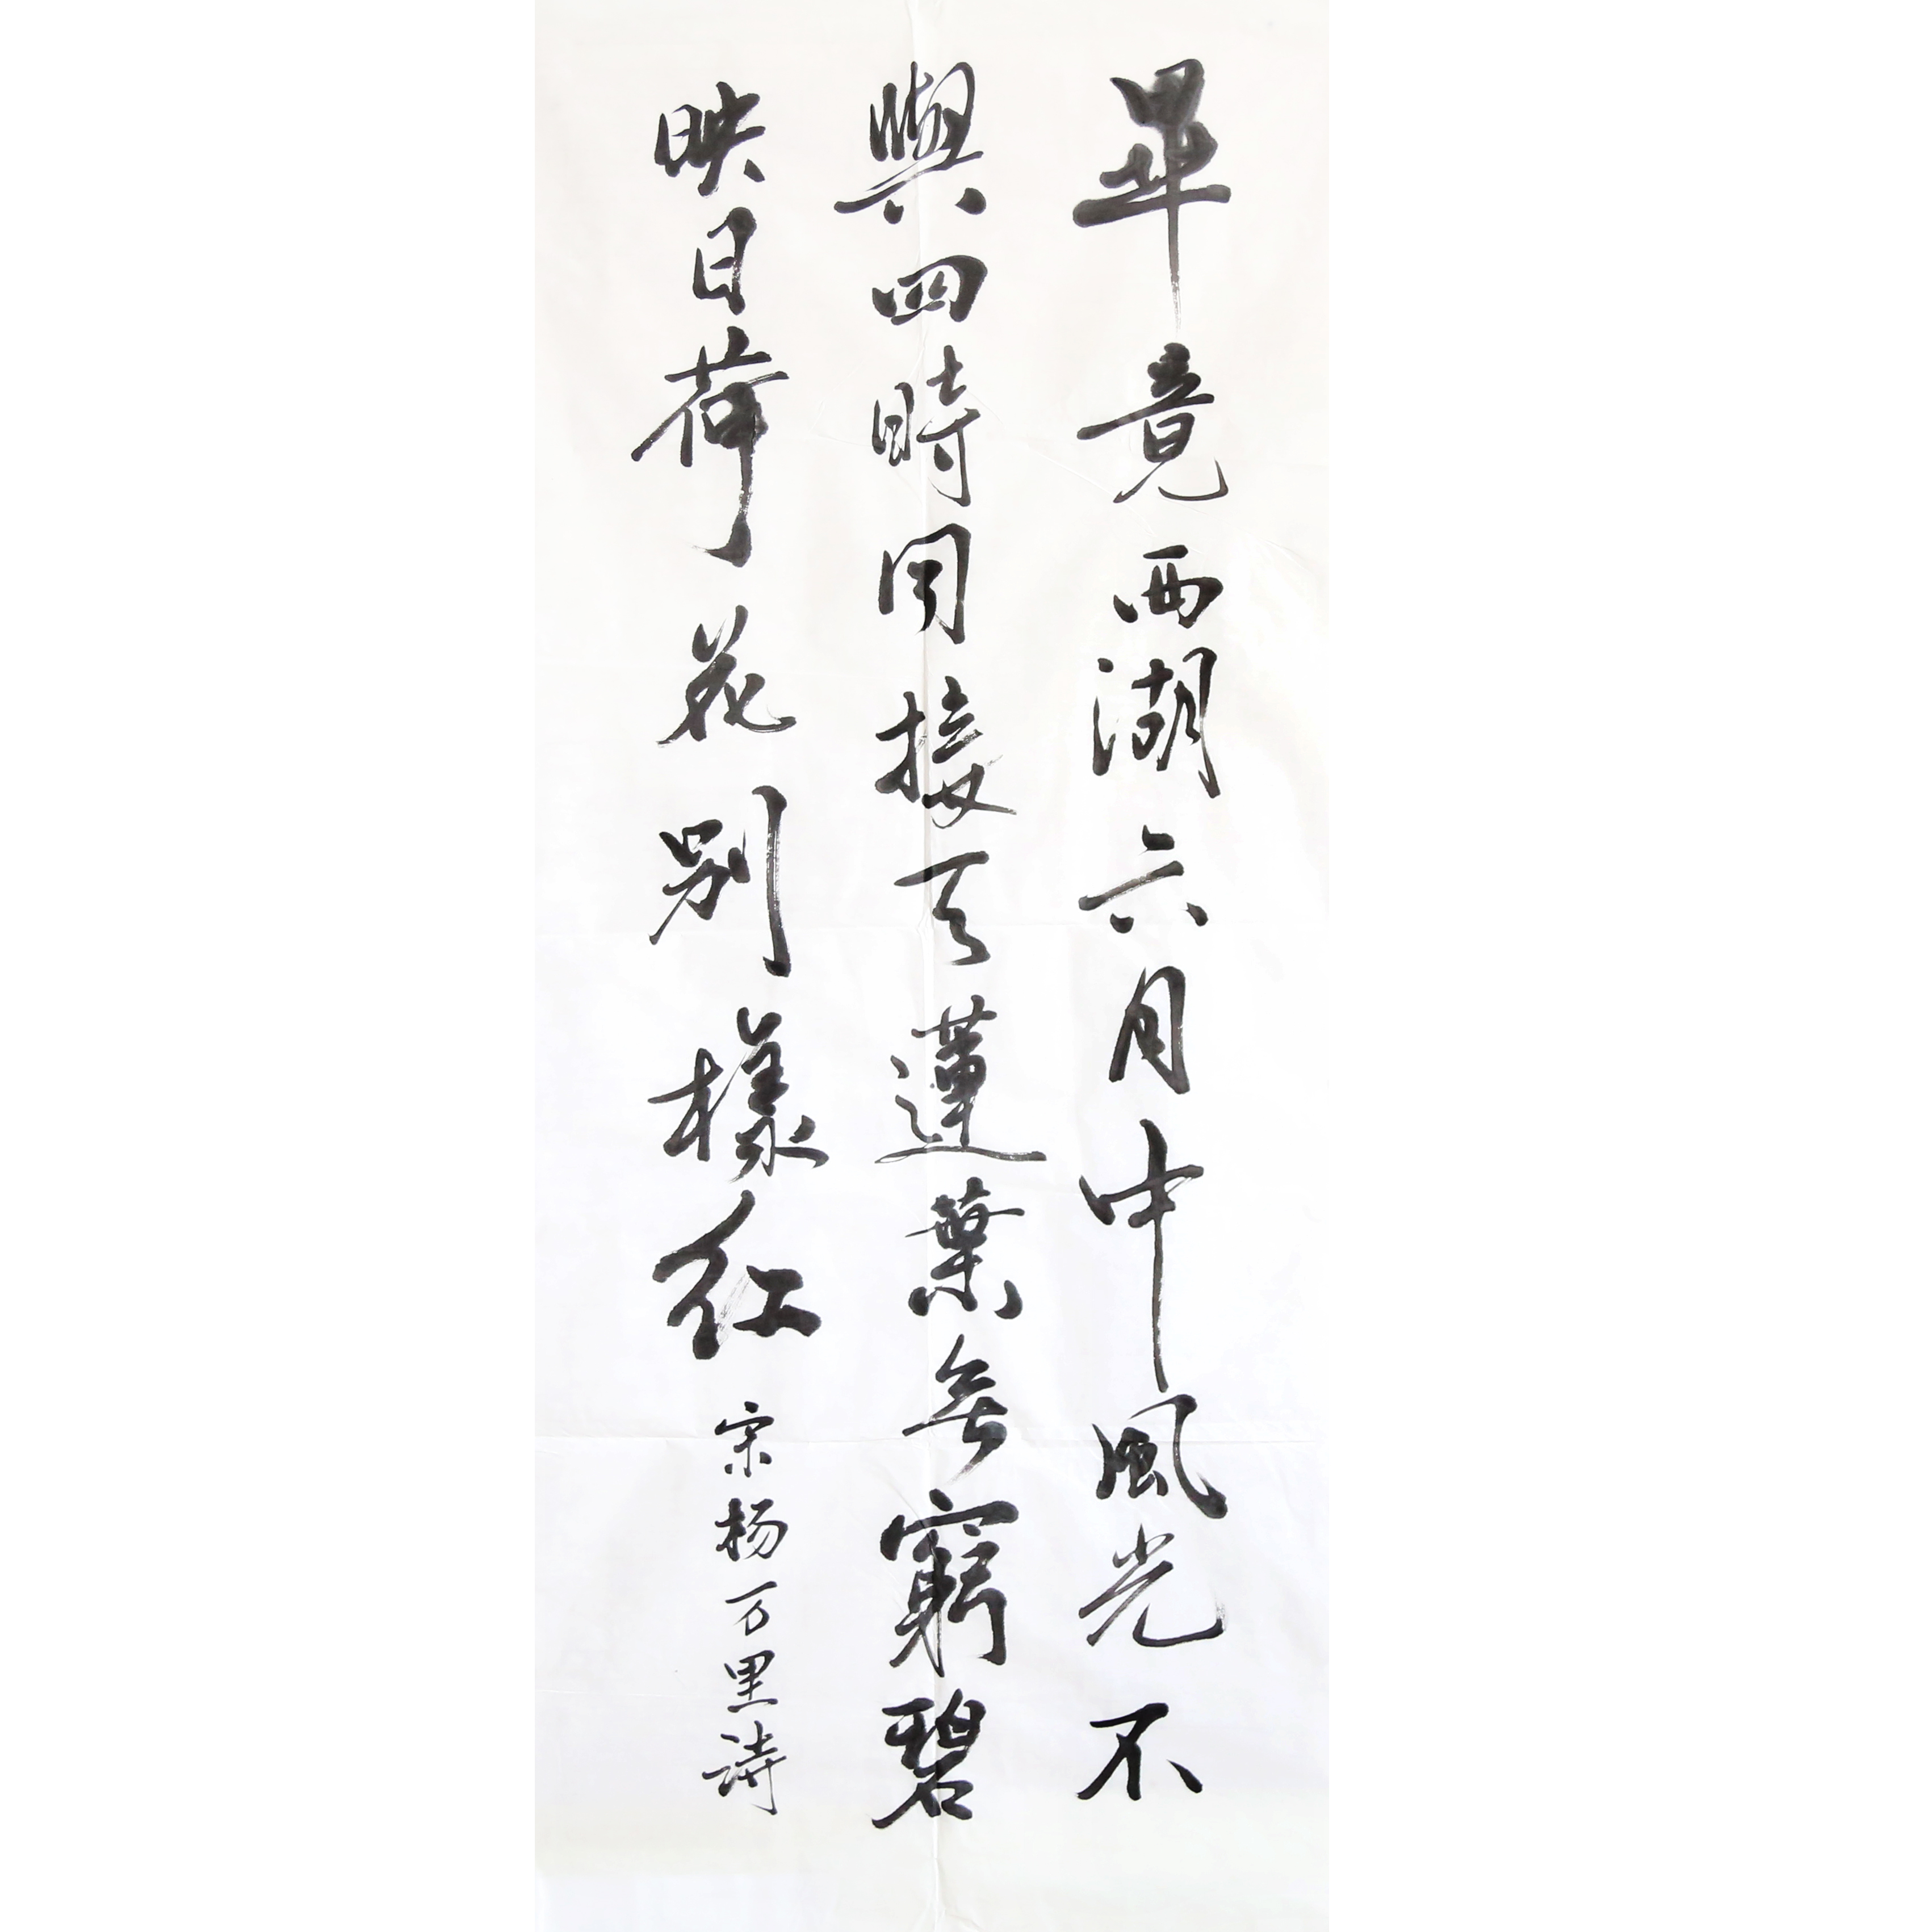 畢竟西湖六月中風光不
與四時同接天蓮葉無窮碧
映日荷花別樣红
宗杨万里詩